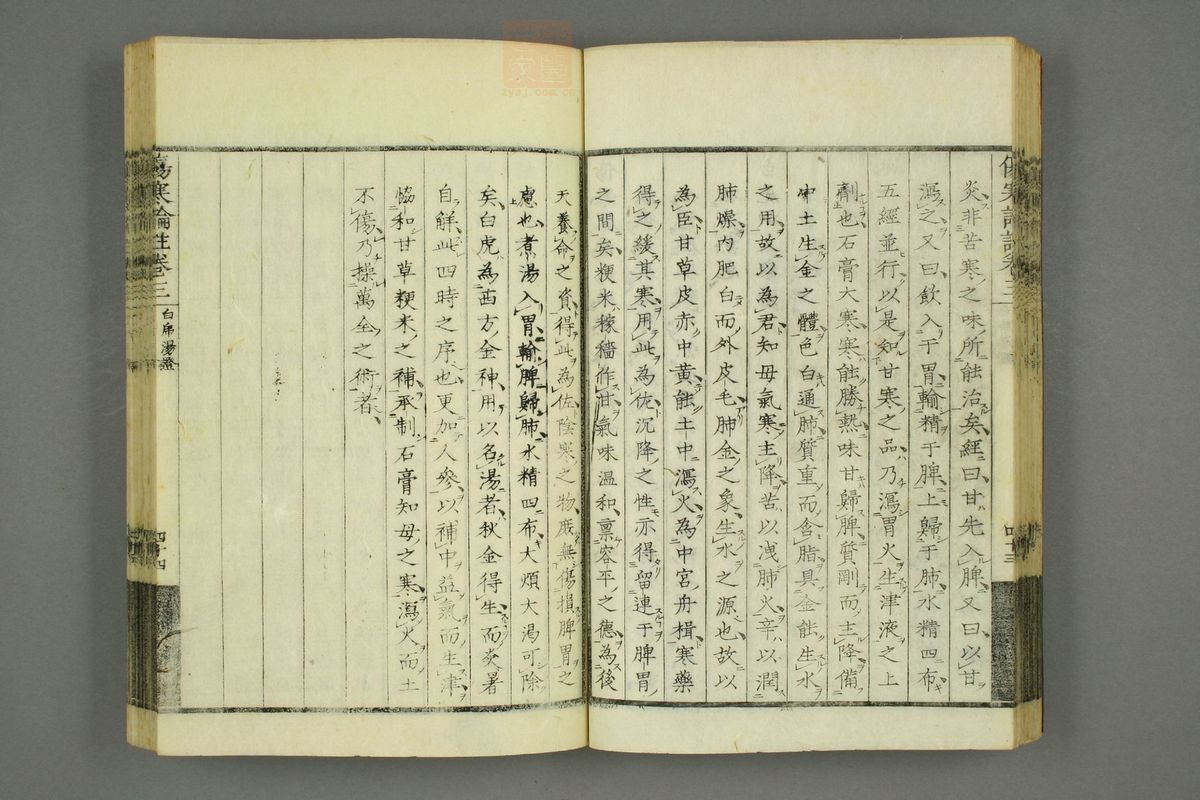 炎非苦寒之味所能治矣經曰甘先入脾又曰以甘
瀉之又曰飲入于胃輸精于脾上歸于肺水精四布
五經並行以是知甘寒之品乃瀉胃火生津液之上
劑也石膏大寒寒能勝熱味甘歸脾質剛而主降備
中土生金之體色白通肺質重而含脂具金能生水
之用故以為君知母氣寒主降苦以洩肺火辛以潤
肺燥內肥白而外皮毛肺金之象生水之源也故以
為臣甘草皮赤中黃能土中瀉火為中宮舟楫寒藥
得之緩其寒用此為佐沉降之性亦得留連于脾胃
之間矣粳米稼穡作甘氣味溫和稟容平之德為後
天養命之資得此為佐陰寒之物庶無傷損脾胃之
慮也煮湯入胃輸脾歸肺水精四布大煩大渴可除
矣白虎為西方金神用以名湯者秋金得生而炎暑
自解此四時之序也更加人參以補中益氣而生津
恊和甘草粳米之補承制石膏知母之寒瀉火而土
不傷乃操萬全之術者
傷寒論註卷三
白虎湯證
四十四
四十三
zysj.com.cn